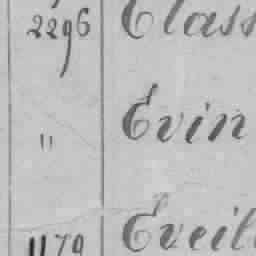 2296 Class
" Evin
1179 Eveil